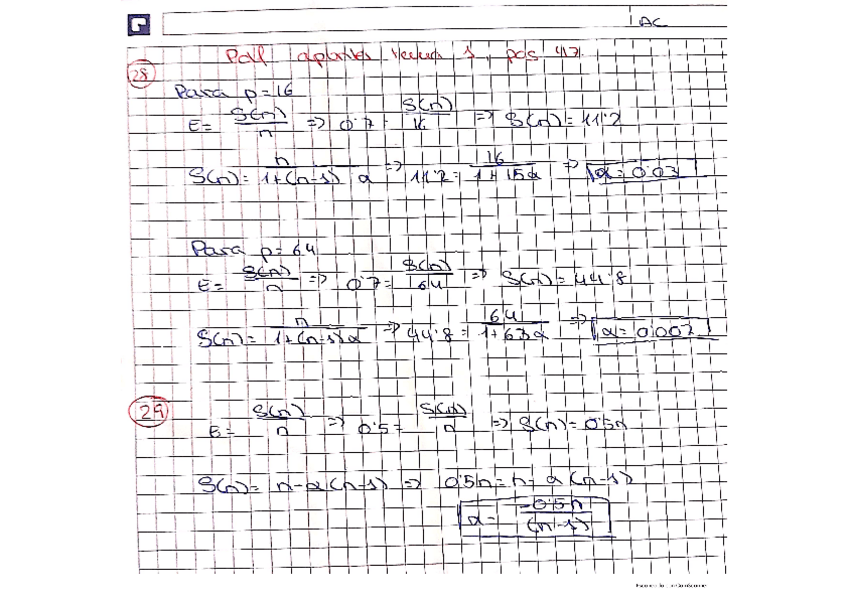 IAC
Pdf apuntes tema 1, pag 47.
28
Para p=16
E= S(n)/n => 0'7 = S(n)/16 => S(n)=11'2
S(n)= n/1+(n-1)α => 11'2= 16/1+15α => α=0'03
Para p=64
E= S(n)/n => 0'7= S(n)/64 => S(n)=44'8
S(n)= n/1+(n-1)α => 44'8= 64/1+63α => α=0'007
29
E= S(n)/n => 0'5= S(n)/n => S(n)=0'5n
S(n)= n-α(n-1) => 0'5n=n-α(n-1)
α= -0'5n/(n-1)